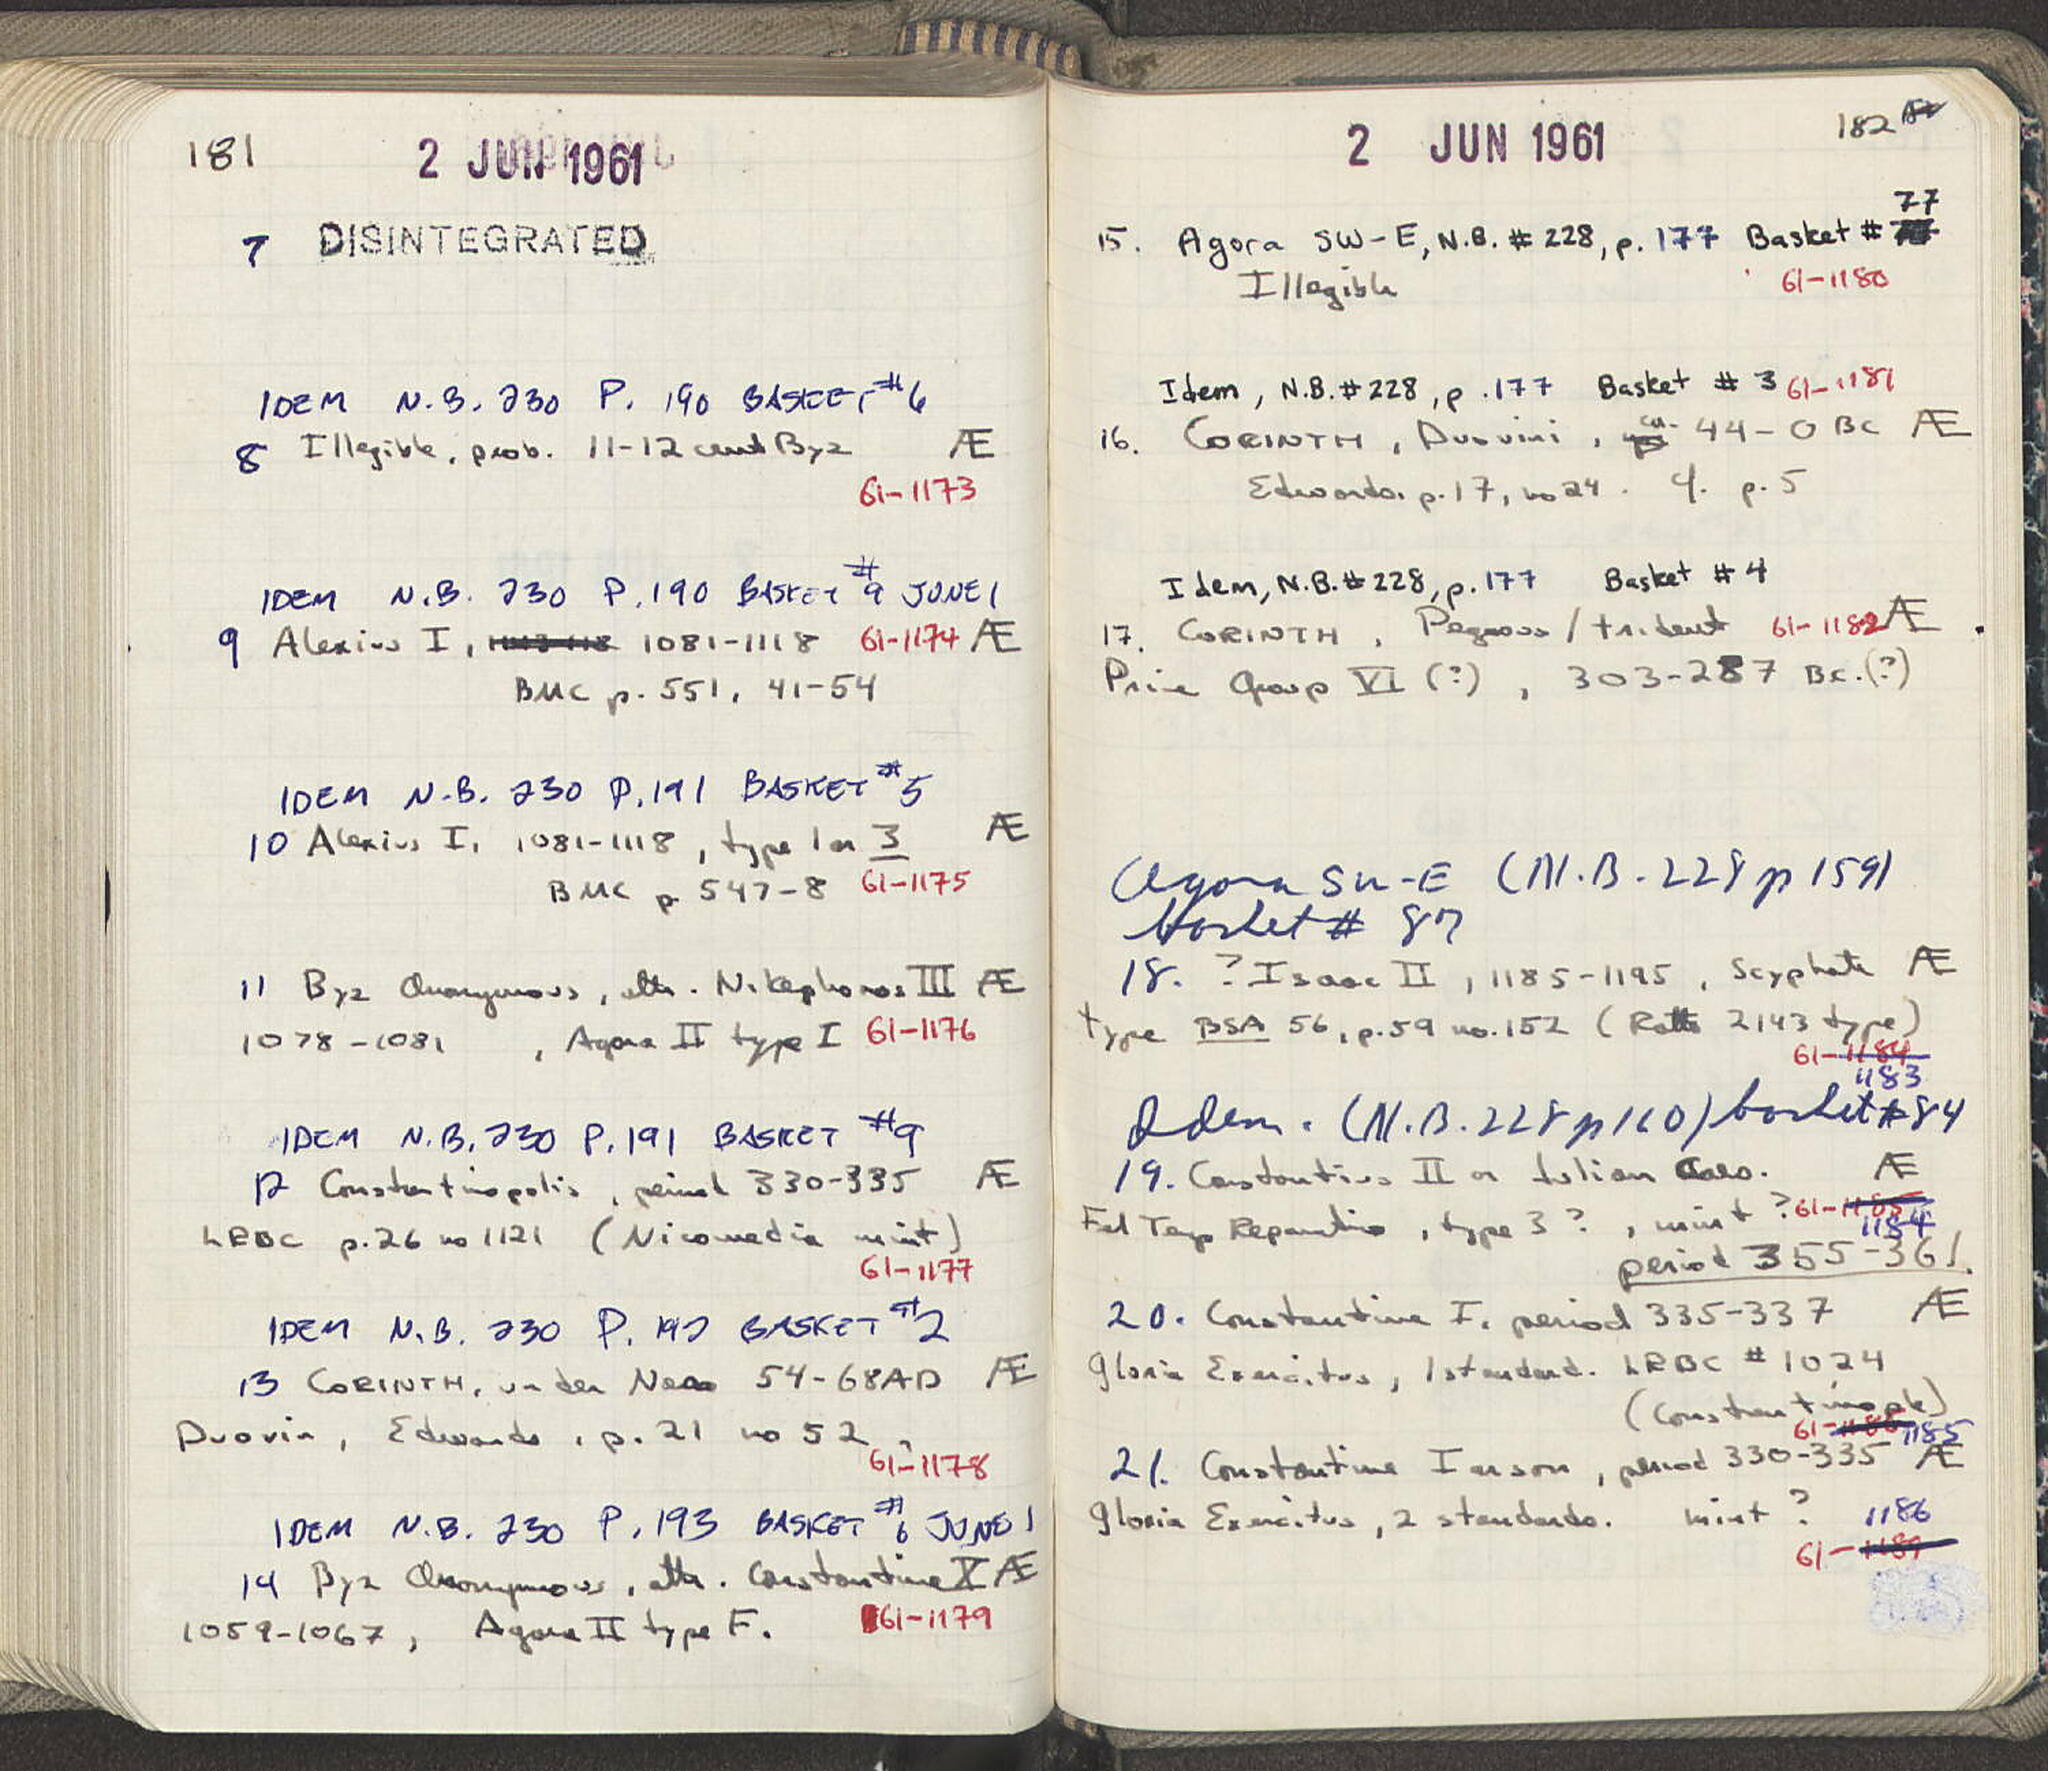 181
2 JUN 1961
7 DISINTEGRATED
IDEM N.B. 230 P. 190 BASKET #6
8 Illegible, prob. 11-12 cent Byz Æ
61-1173
IDEM N.B. 230 P. 190 BASKET #9 JUNE 1
9 Alexius I, 1081-1118 61-1174 Æ
BMC p. 551, 41-54
IDEM N.B. 230 P. 191 BASKET #5
10 Alexius I, 1081-1118, type 1 or 3 Æ
BMC p. 547-8 61-1175
11 Byz Anonymous, attr. Nikephoros III Æ
1078-1081, Agora II type I 61-1176
IDEM N.B. 230 P. 191 BASKET #9
12 Constantinopolis, period 330-335 Æ
LRBC p. 26 no 1121 (Nicomedia mint)
61-1177
IDEM N.B. 230 P. 192 BASKET #2
13 CORINTH, under Nero 54-68 AD Æ
Duovir, Edwards, p. 21 no 52
61-1178
IDEM N.B. 230 P. 193 BASKET #6 JUNE 1
14 Byz Anonymous, attr. Constantine X Æ
1059-1067, Agora II type F. 61-1179
182
2 JUN 1961
15. Agora SW-E, N.B. #228, p. 177 Basket # 77
Illegible 61-1180
Idem, N.B. #228, p. 177 Basket # 3 61-1181
16. CORINTH, Duoviri, ca. 44-0 BC Æ
Edwards. p. 17, no 24. cf. p. 5
Idem, N.B. #228, p. 177 Basket # 4
17. CORINTH, Pegasus / trident 61-1182 Æ
Price Group VI (?), 303-287 BC. (?)
Agora SW-E (N.B. 228 p 159)
basket # 87
18. ? Isaac II, 1185-1195, Scyphate Æ
type BSA 56, p. 59 no. 152 (Ratto 2143 type)
61-1184
1183
Idem. (N.B. 228 p 160) basket #84
19. Constantius II or Julian Caes. Æ
Fel Temp Reparatio, type 3?, mint? 61-1185
1184
period 355-361.
20. Constantine I, period 335-337 Æ
Gloria Exercitus, 1 standard. LRBC # 1024
(Constantinople)
61-1186 1185
21. Constantine I or son, period 330-335 Æ
Gloria Exercitus, 2 standards. mint? 1186
61-1187